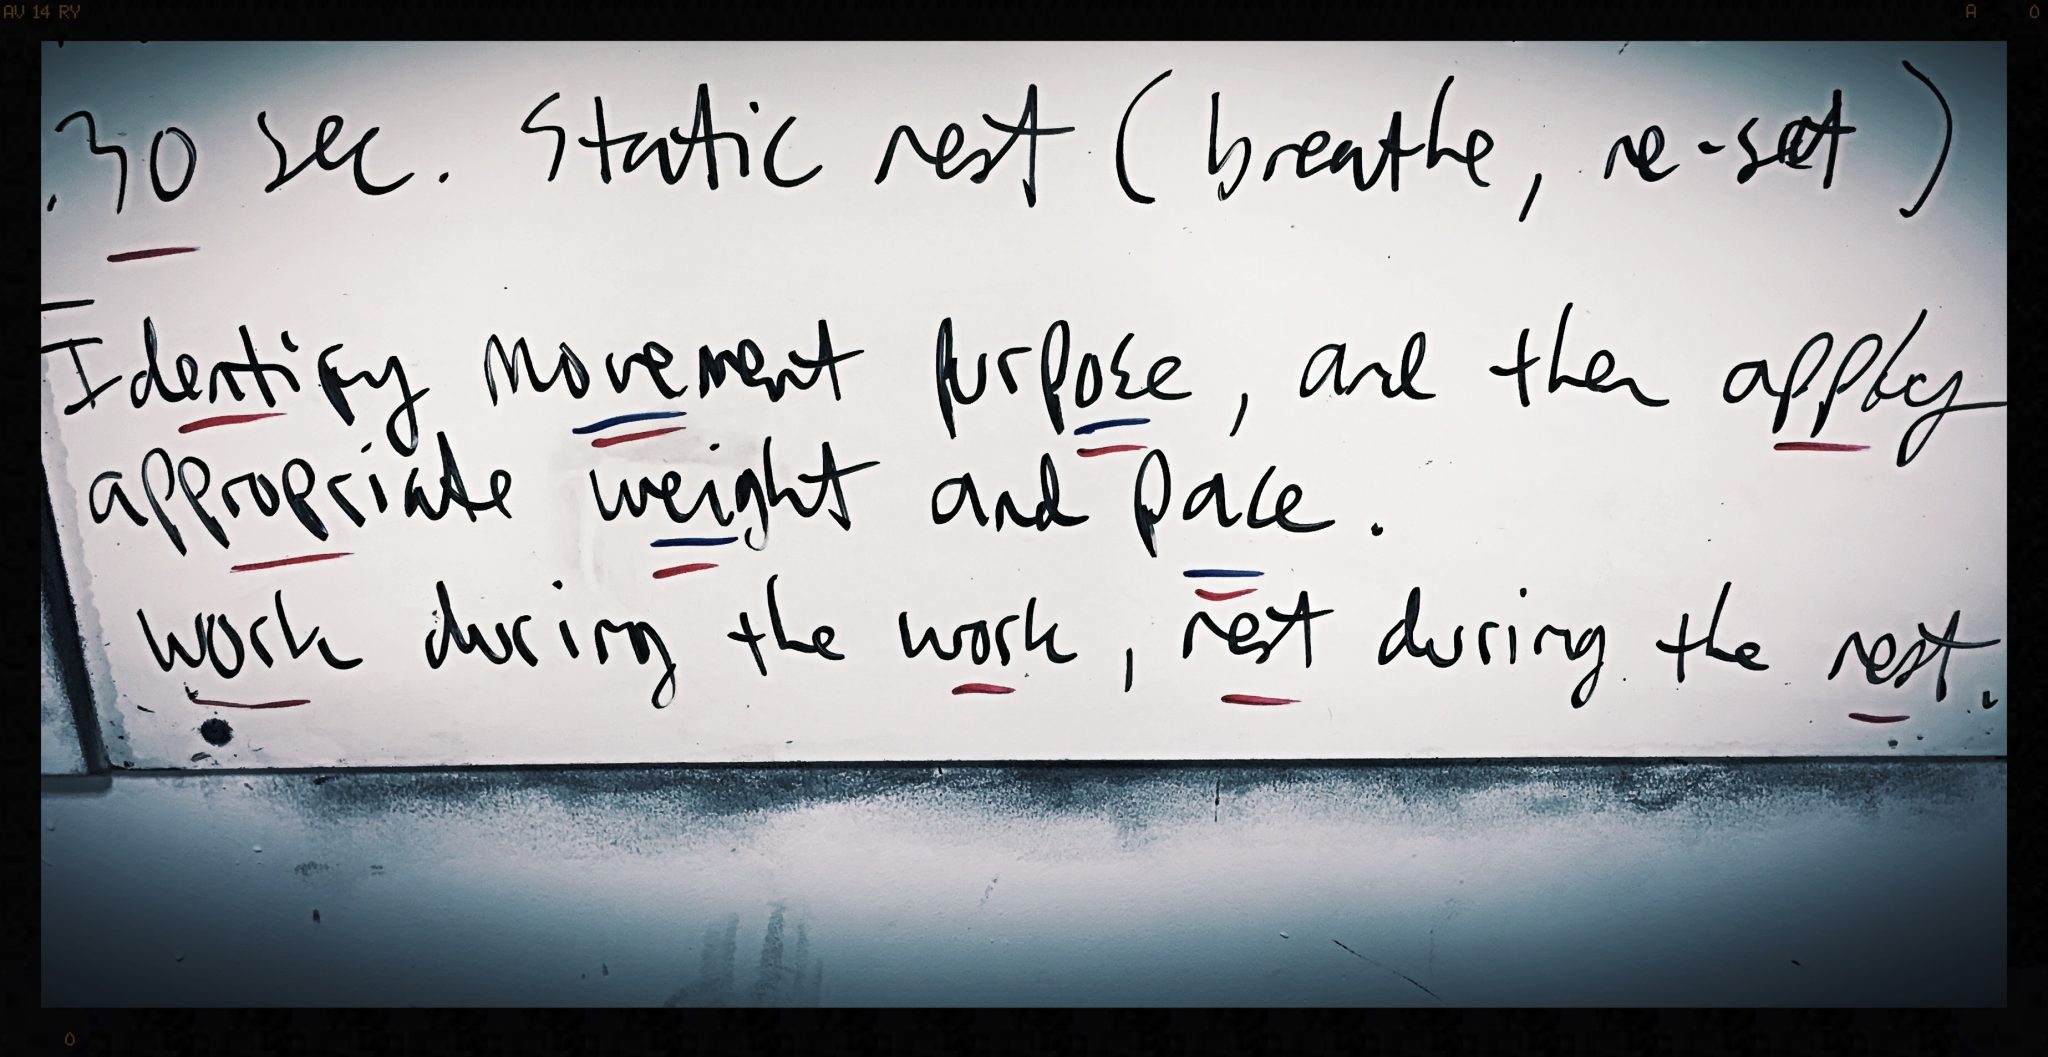 AV 14 RY
A 0
.30 sec. Static rest (breathe, re-set)
Identify movement purpose, and then apply
appropriate weight and pace.
work during the work, rest during the rest.
0